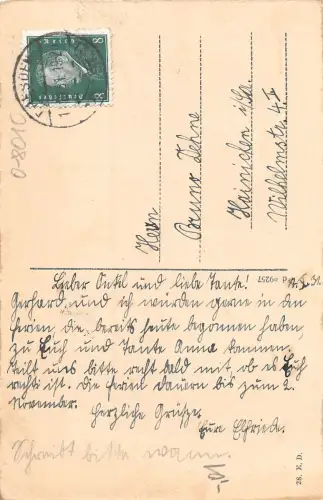 Deutsches Reich
8 8
DRESDEN
08010
Herrn
Bruno Dehne
Hainichen i/Sa.
Wilhelmstr. 4 I
Lieber Onkel und liebe Tante!
Gerhard und ich würden gerne in den
Ferien, die bereits heute begonnen haben,
zu Euch und Tante Anna kommen.
Teilt uns bitte recht bald mit, ob es Euch
recht ist. Die Ferien dauern bis zum 2.
November.
Herzliche Grüße
Eure Elfriede.
Schreibt bitte wann.
-,10
28. E. D.